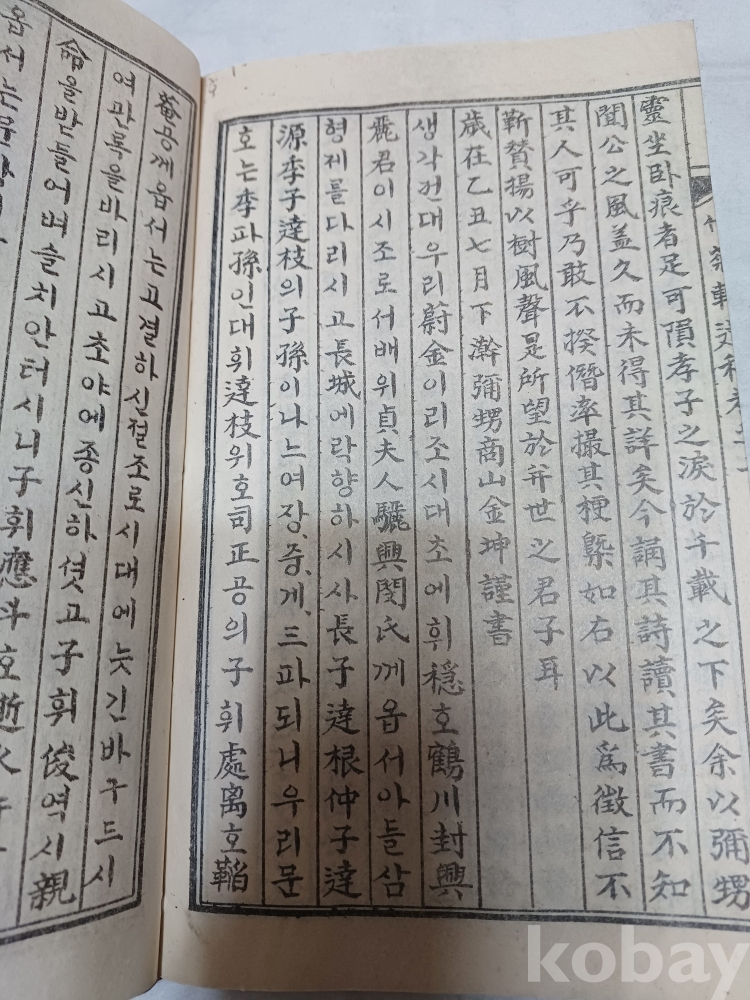 靈坐卧痕者足可隕孝子之淚於千載之下矣余以彌甥
閒公之風盖久而未得其詳矣今誦其詩讀其書而不知
其人可乎乃敢不揆僭率撮其梗槩如右以此爲徵信不
靳賛揚以樹風聲是所望於并世之君子耳
歲在乙丑七月下澣彌甥商山金坤謹書
생각컨대우리蔚金이리조시대초에휘穩호鶴川封興
麗君이시조로서배위貞夫人驪興閔氏께옵서아들삼
형제를다리시고長城에락향하시사長子達根仲子達
源季子達枝의子孫이나느여장、중、게、三파되니우리문
호는季파孫인대휘達枝위호司正公의子휘處离호韜
菴공께옵서는고결하신절조로시대에늣긴바구드시
여관록을바리시고초야에종신하셧고子휘俊역시親
命을받들어벼슬치안터시니子휘應斗호逝
옵서는문
kobay